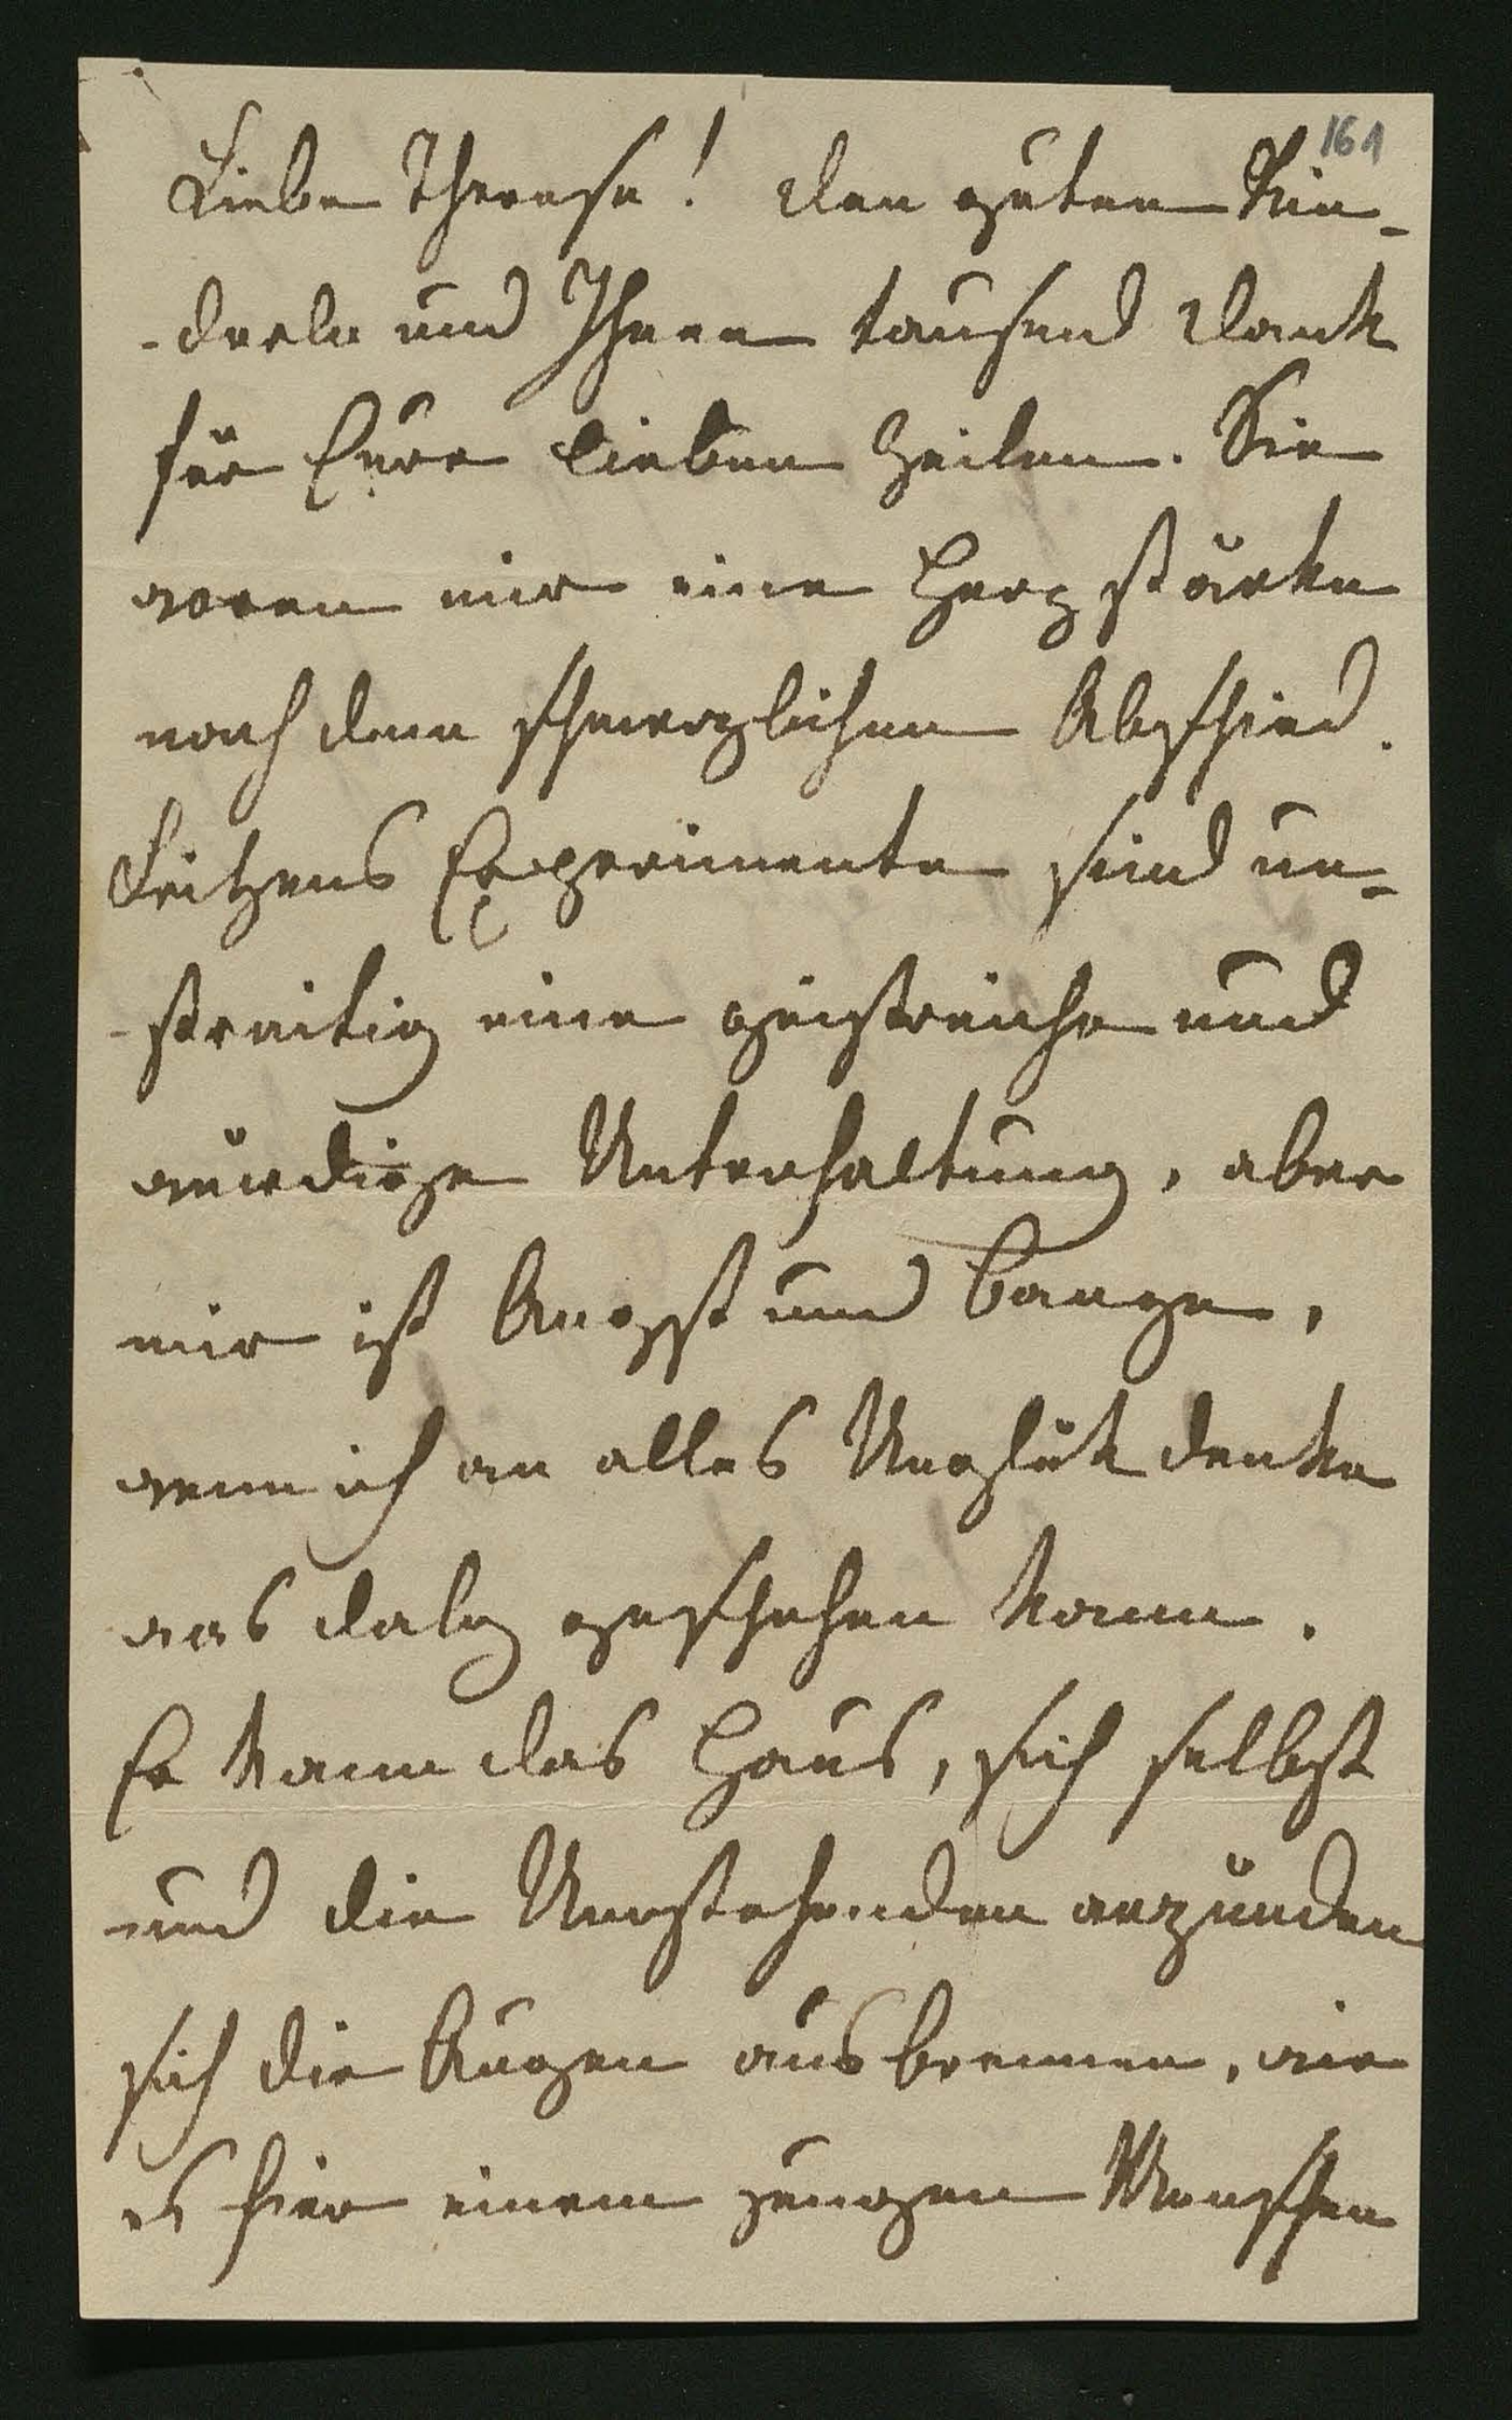 161
Liebe Therese! Den guten Kin-
-derln und Ihnen tausend Dank
für Eure lieben Zeilen. Sie
waren mir eine Herzstärke
nach dem schmerzlichen Abschied.
Fritzens Experimente sind un-
-streitig eine geistreiche und
würdige Unterhaltung, aber
mir ist Angst und bange,
wenn ich an alles Unglük denke
was dabey geschehen kann.
Er kann das Haus, sich selbst
und die Umstehenden anzünden
sich die Augen ausbrennen, wie
es hier einem jungen Menschen